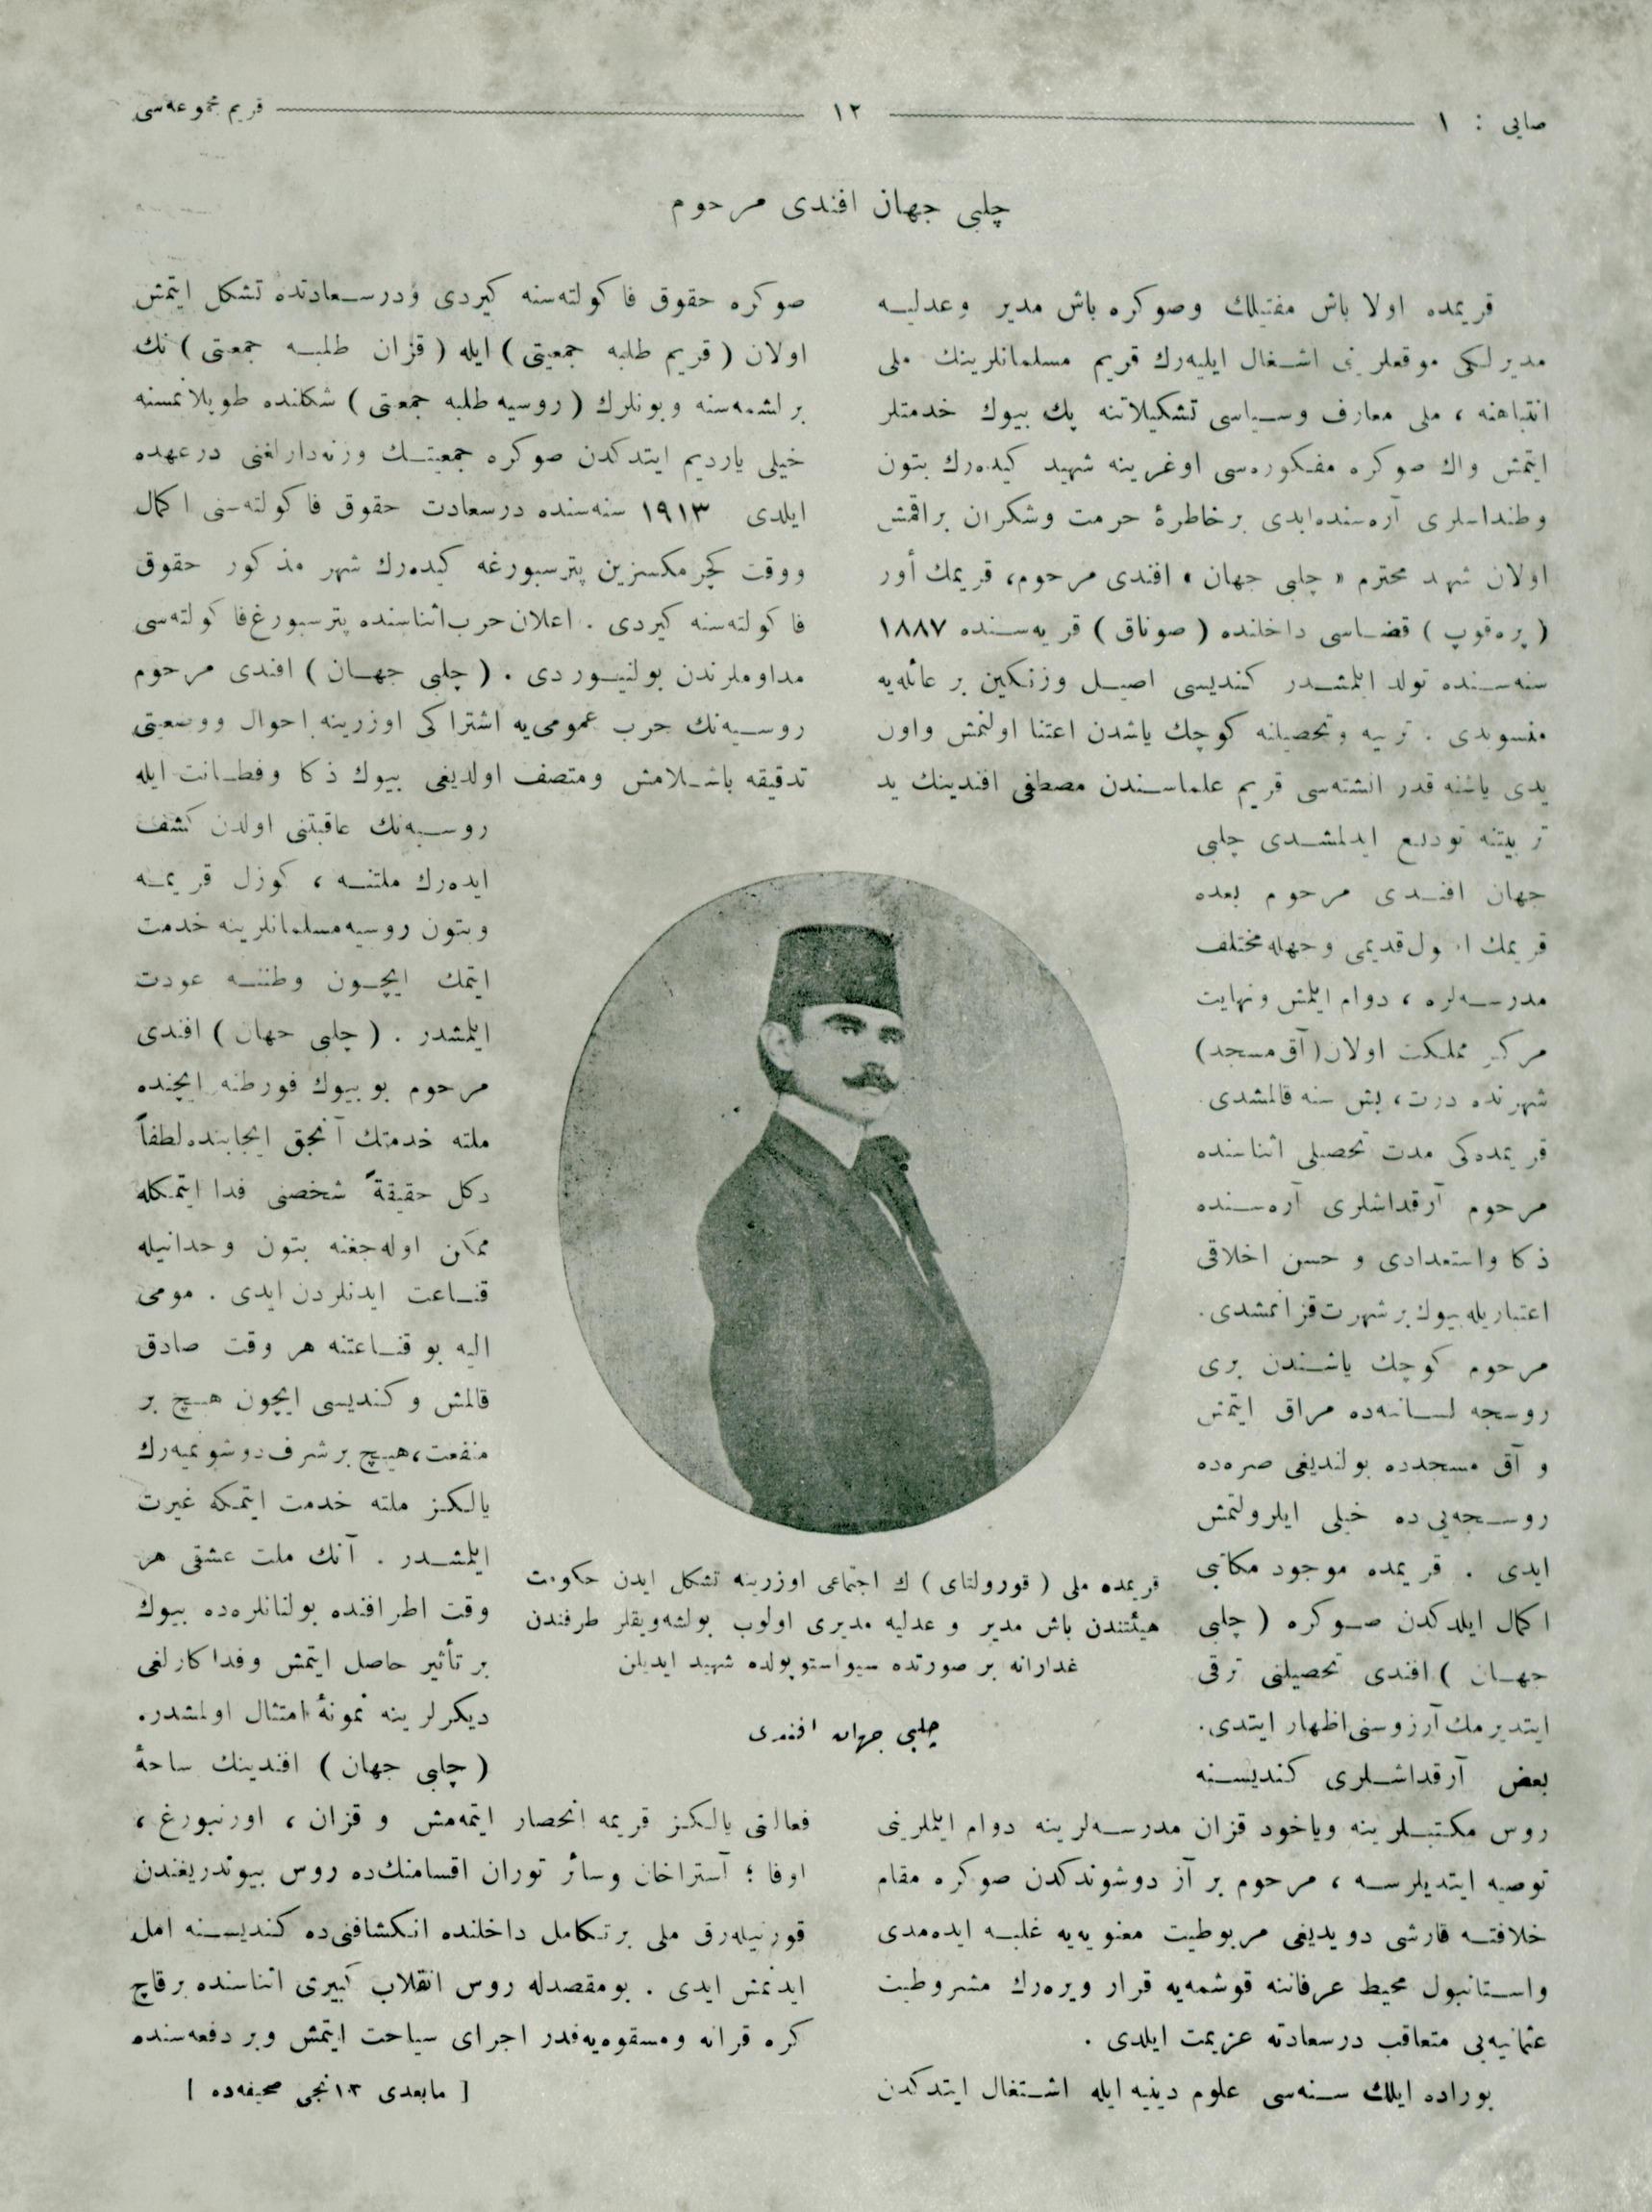 صایی : ١
١٢
قریم مجموعه‌سی
چلبی جهان افندی مرحوم
قریمده اولا باش مفتیلك وصوکره باش مدیر وعدلیـه
مدیرلکی موقعلرینی اشـغال ایلیه‌رك قریم مسلمانلرینك ملی
انتباهنه ، ملی معارف وسـیاسی تشکیلاتنه پك بیوك خدمتلر
ایتمش واك صوکره مفکوره‌سی اوغرینه شهید کیده‌رك بتون
وطنداشلری آره‌سنده‌ابدی برخاطرۀ حرمت وشکران براقمش
اولان شهید محترم « چلبی جهان » افندی مرحوم، قریمك أور
( پره‌قوپ ) قضـاسی داخلنده ( صوناق ) قریه‌سـنده ١٨٨٧
سنه‌سـنده تولد ایلمشـدر کندیسی اصیـل وزنکین بر عائله‌یه
منسوبدی . تربیه وتحصیلنه کوچك یاشدن اعتنا اولنمش واون
یدی یاشنه قدر انشته‌سی قریم علماسـندن مصطفی افندینك ید
تربیتنه تودیع ایدلمشـدی چلبی
جهان افنـدی مرحوم بعده
قریمك اصول‌قدیمی وجهله مختلف
مدرسـه‌لره ، دوام ایلمش ونهایت
مرکز مملکت اولان(آق‌مسجد)
شهرنده درت، بش سنه قالمشدی.
قریمده‌کی مدت تحصیلی اثناسنده
مرحوم آرقداشلری آره‌سـنده
ذکا واستعدادی و حسن اخلاقی
اعتباریله بیوك بر شهرت‌قزانمشدی.
مرحوم کوچك یاشـندن بری
روسجه لسـانه‌ده مراق ایتمش
و آق مسجدده بولندیغی صره‌ده
روسـجه‌یی ده خیلی ایلرولتمش
ایدی . قریمده موجود مکاتبی
اکمال ایلدکدن صـوکره ( چلبی
جهـان ) افندی تحصیلنی ترقی
ایتدیرمك‌آرزوسنی‌اظهار ایتدی.
بعض آرقداشـلری کندیسـنه
روس مکتبـلرینه ویاخود قزان مدرسـه‌لرینه دوام ایتملرینی
توصیه ایتدیلرسـه ، مرحوم بر آز دوشوندکدن صوکره مقام
خلافتـه قارشی دویدیغی مربوطیت معنویه‌یه غلبـه ایده‌مدی
واسـتانبول محیط عرفاننه قوشمه‌یه قرار ویره‌رك مشروطیت
عثمانیه‌یی متعاقب درسعادته عزیمت ایلدی .
بوراده ایلك سـنه‌سی علوم دینیه ایله اشـتغال ایتدکدن
صوکره حقوق فاکولته‌سنه کیردی ودرسـعادتده تشکل ایتمش
اولان ( قریم طلبه جمعیتی ) ایله ( قزان طلبـه جمعتی ) نك
برلشمه‌سنه وبونلرك ( روسیه طلبه جمعتی ) شکلنده طوپلانمسنه
خیلی یاردیم ایتدکدن صوکره جمعیتـك وزنه‌دارلغنی درعهده
ایلدی ١٩١٣ سنه‌سنده درسعادت حقوق فاکولته‌سنی اکمال
ووقت کچیرمکسزین پترسبورغه کیده‌رك شهر مذکور حقوق
فاکولته‌سنه کیردی . اعلان حرب‌اثناسنده پترسبورغ‌فاکولته‌سی
مداوملرندن بولنیـوردی . ( چلبی جهـان ) افندی مرحوم
روسـیه‌نك حرب عمومی‌یه اشتراکی اوزرینه احوال ووضعیتی
تدقیقه باشـلامش ومتصف اولدیغی بیوك ذکا وفطـانت ایله
روسـیه‌نك عاقبتنی اولدن کشف
ایده‌رك ملتنـه ، کوزل قریمـه
وبتون روسیه‌مسلمانلرینه خدمت
ایتمك ایچـون وطننـه عودت
ایلمشدر . ( چلبی جهان ) افندی
مرحوم بو بیوك فورطنه ایچنده
ملته خدمتك آنجق ایجابنده‌لطفاً
دکل حقیقةً شخصنی فدا ایتمکله
ممکن اوله‌جغنه بتون وجدانیله
قنـاعت ایدنلردن ایدی . مومی
الیه بو قنـاعتنه هر وقت صادق
قالمش و کندیسی ایچون هـیچ بر
منفعت،هیـچ برشرف‌دوشونمیه‌رك
یالـکز ملته خدمت ایتمـکه غیرت
ایلمشـدر . آنك ملت عشقی هر
وقت اطرافنده بولنانلره‌ده بیوك
بر تأثیر حاصل ایتمش وفداکارلغی
دیکرلرینه نمونۀ امتثال اولمشدر.
( چلبی جهان ) افندینك ساحۀ
فعالتی یالـکز قریمه انحصار ایتمه‌مش و قزان ، اورنبورغ ،
اوفا ؛ آستراخان وسائر توران اقسامنك‌ده روس بیوندریغندن
قورتیله‌رق ملی برتـکامل داخلنده انـکشافنی‌ده کندیسـنه امل
ایدنمش ایدی . بومقصدله روس انقلاب کبیری اثناسنده برقاچ
کره قزانه ومسقوه‌یه‌قدر اجرای سیاحت ایتمش وبر دفعه‌سنده
[ مابعدی ١٣نجی صحیفه‌ده ]
قریمده ملی ( قورولتای ) ك اجتماعی اوزرینه تشکل ایدن حکومت
هیئتندن باش مدیر و عدلیه مدیری اولوب بولشه‌ویقلر طرفندن
غدارانه بر صورتده سیواستوپولده شهید ایدیلن
چلبی جهان افندی